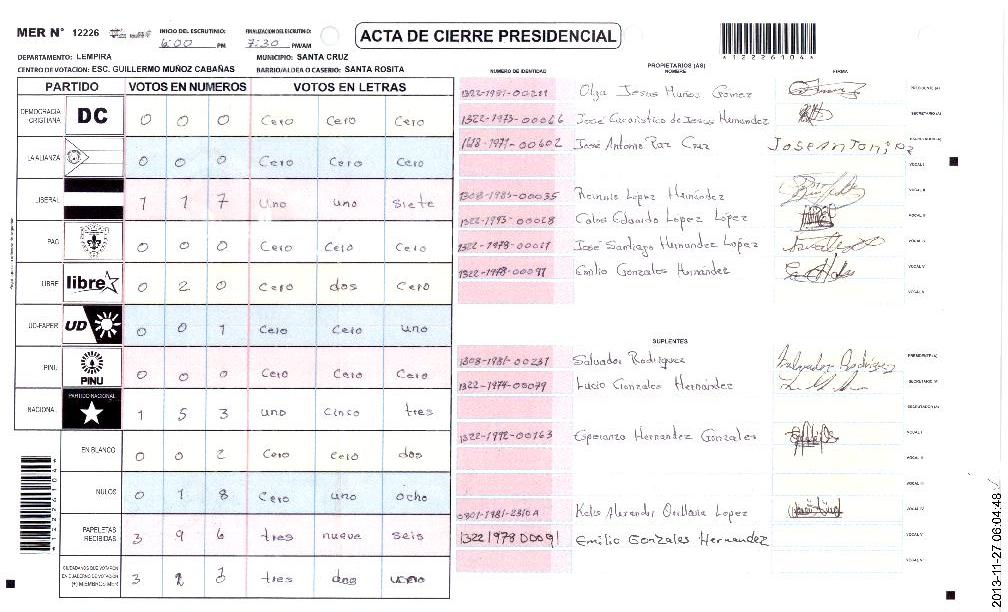 MER N° 12226 INICIO DEL ESCRUTINIO: 6:00 PM FINALIZACION DEL ESCRUTINIO: 7:30 PM/AM
ACTA DE CIERRE PRESIDENCIAL
*1226104*
DEPARTAMENTO: LEMPIRA MUNICIPIO: SANTA CRUZ
CENTRO DE VOTACION: ESC. GUILLERMO MUÑOZ CABAÑAS BARRIO/ALDEA O CASERIO: SANTA ROSITA
PARTIDO VOTOS EN NUMEROS VOTOS EN LETRAS
DEMOCRACIA CRISTIANA DC 0 0 0 Cero Cero Cero
LA ALIANZA 0 0 0 Cero Cero Cero
LIBERAL 1 1 7 Uno uno siete
PAC 0 0 0 Cero Cero Cero
LIBRE libre 0 2 0 Cero dos Cero
UD-FAPER UD 0 0 1 Cero Cero uno
PINU PINU 0 0 0 Cero Cero Cero
NACIONAL PARTIDO NACIONAL 1 5 3 uno Cinco tres
EN BLANCO 0 0 2 Cero Cero dos
NULOS 0 1 8 Cero uno ocho
PAPELETAS RECIBIDAS 3 9 6 tres nueve seis
CIUDADANOS QUE VOTARON EN CUADERNO DE VOTACION (+) MIEMBROS MER 3 2 tres dos
PROPIETARIOS (AS)
NUMERO DE IDENTIDAD NOMBRE FIRMA
Olga Jesus Muñoz Gomez PRESIDENTE (A)
1322-1973-00066 Jose Jesus Hernandez SECRETARIO (A)
1971-00602 José Antonio Paz Cruz JOSEANTONIO
VOCAL I
00035 López Hernández VOCAL II
1322-1993-00028 Eduardo Lopez López VOCAL III
1322-1978-000 José Santiago Hernandez Lopez
Emilio Gonzales Hernández VOCAL V
VOCAL VI
SUPLENTES
1308-1981-00237 Salvador Rodriguez Salvador Rodriguez PRESIDENTE (A)
1322-1974-00079 Lucio Gonzales Hernandez SECRETARIO (A)
1322-1992-00163 Esperanza Hernandez Gonzales VOCAL I
VOCAL II
VOCAL III
0801-1981- Orellana Lopez VOCAL IV
1322 1978 0009 Emilio Gonzales Hernandez VOCAL V
VOCAL VI
2013-11-27 06:04:48